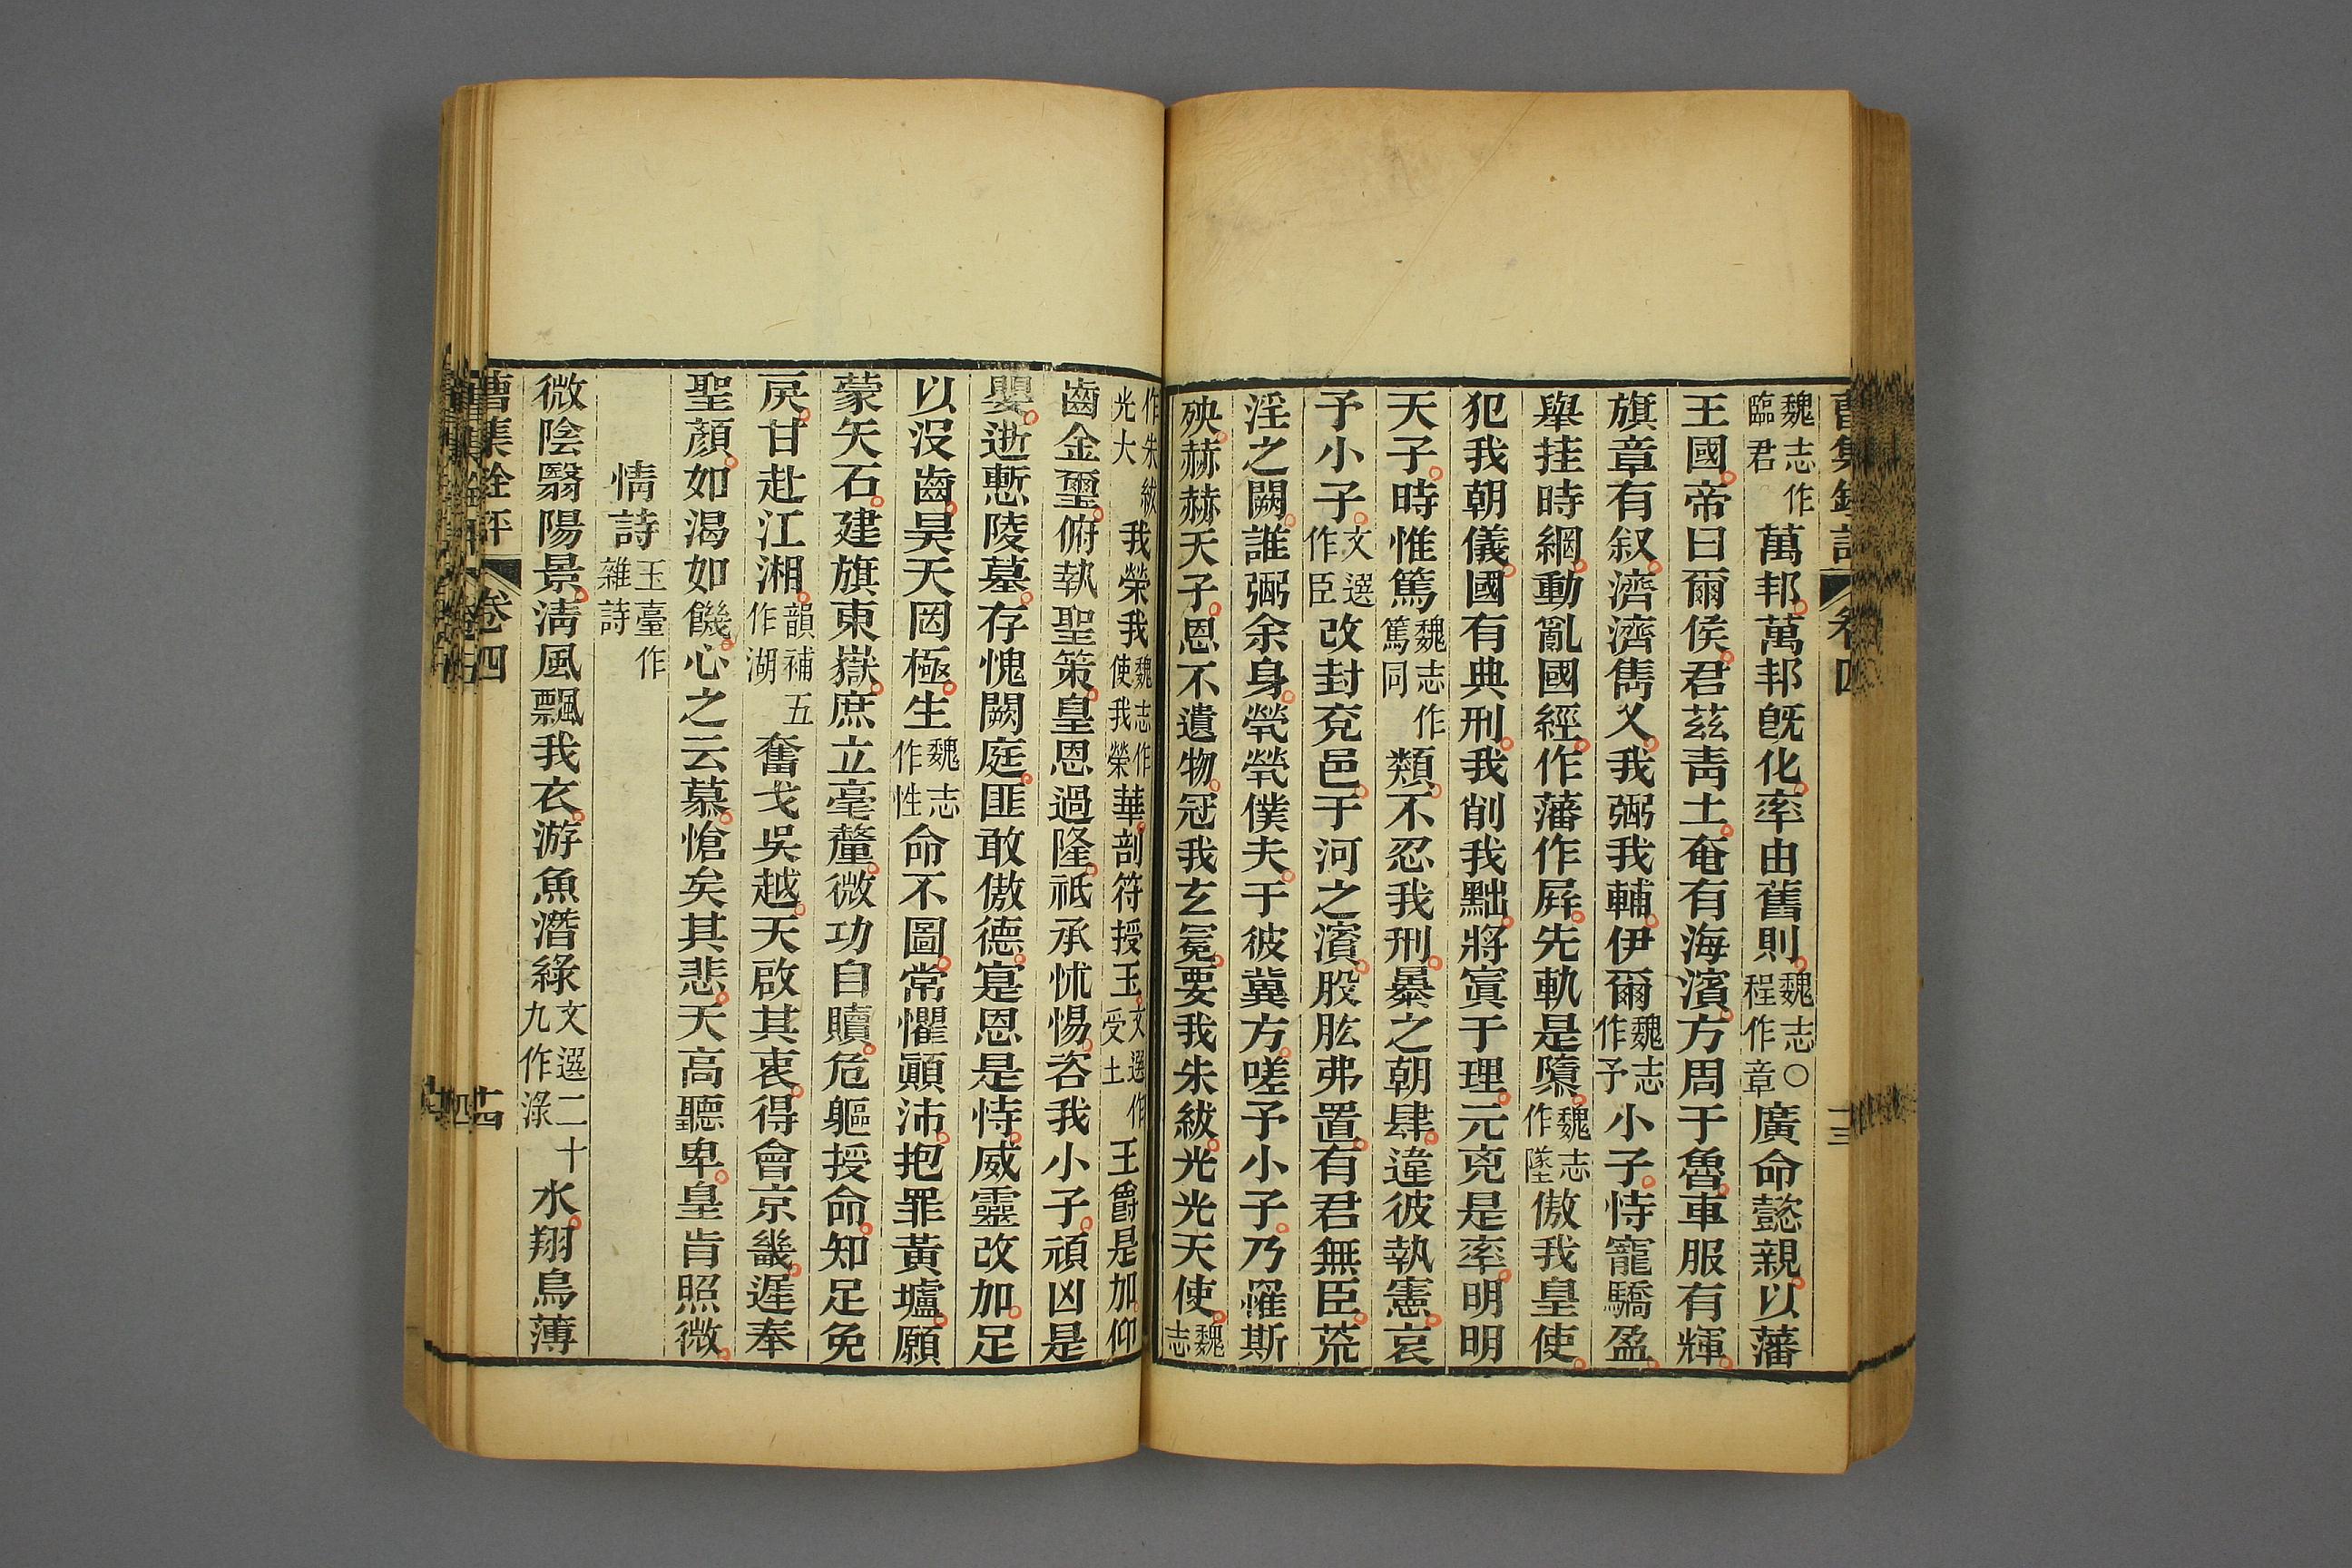 曹集銓評 卷四 十三
魏志作臨君萬邦萬邦旣化率由舊則魏志○程作章廣命懿親以藩
王國帝曰爾侯君茲靑土奄有海濱方周于魯車服有輝
旗章有叙濟濟雋乂我弼我輔伊爾魏志作予小子恃寵驕盈
舉挂時網動亂國經作藩作屛先軌是隳魏志作墜傲我皇使
犯我朝儀國有典刑我削我黜將寘于理元兇是率明明
天子時惟篤魏志作篤同類不忍我刑暴之朝肆違彼執憲哀
予小子文選作臣改封兗邑于河之濱股肱弗置有君無臣荒
淫之闕誰弼余身煢煢僕夫于彼冀方嗟予小子乃罹斯
殃赫赫天子恩不遺物冠我玄冕要我朱紱光光天使魏志
作朱紱光大我榮我魏志作使我榮華剖符授玉文選作受土王爵是加仰
齒金璽俯執聖策皇恩過隆祗承怵惕咨我小子頑凶是
嬰逝慙陵墓存愧闕庭匪敢傲德寔恩是恃威靈改加足
以沒齒昊天罔極生魏志作性命不圖常懼顚沛抱罪黃壚願
蒙矢石建旗東嶽庶立毫釐微功自贖危軀授命知足免
戾甘赴江湘韻補五作湖奮戈吳越天啟其衷得會京畿遲奉
聖顏如渴如饑心之云慕愴矣其悲天高聽卑皇肯照微
情詩玉臺作雜詩
微陰翳陽景淸風飄我衣游魚潛綠文選二十九作淥水翔鳥薄
曹集銓評 卷四 十四